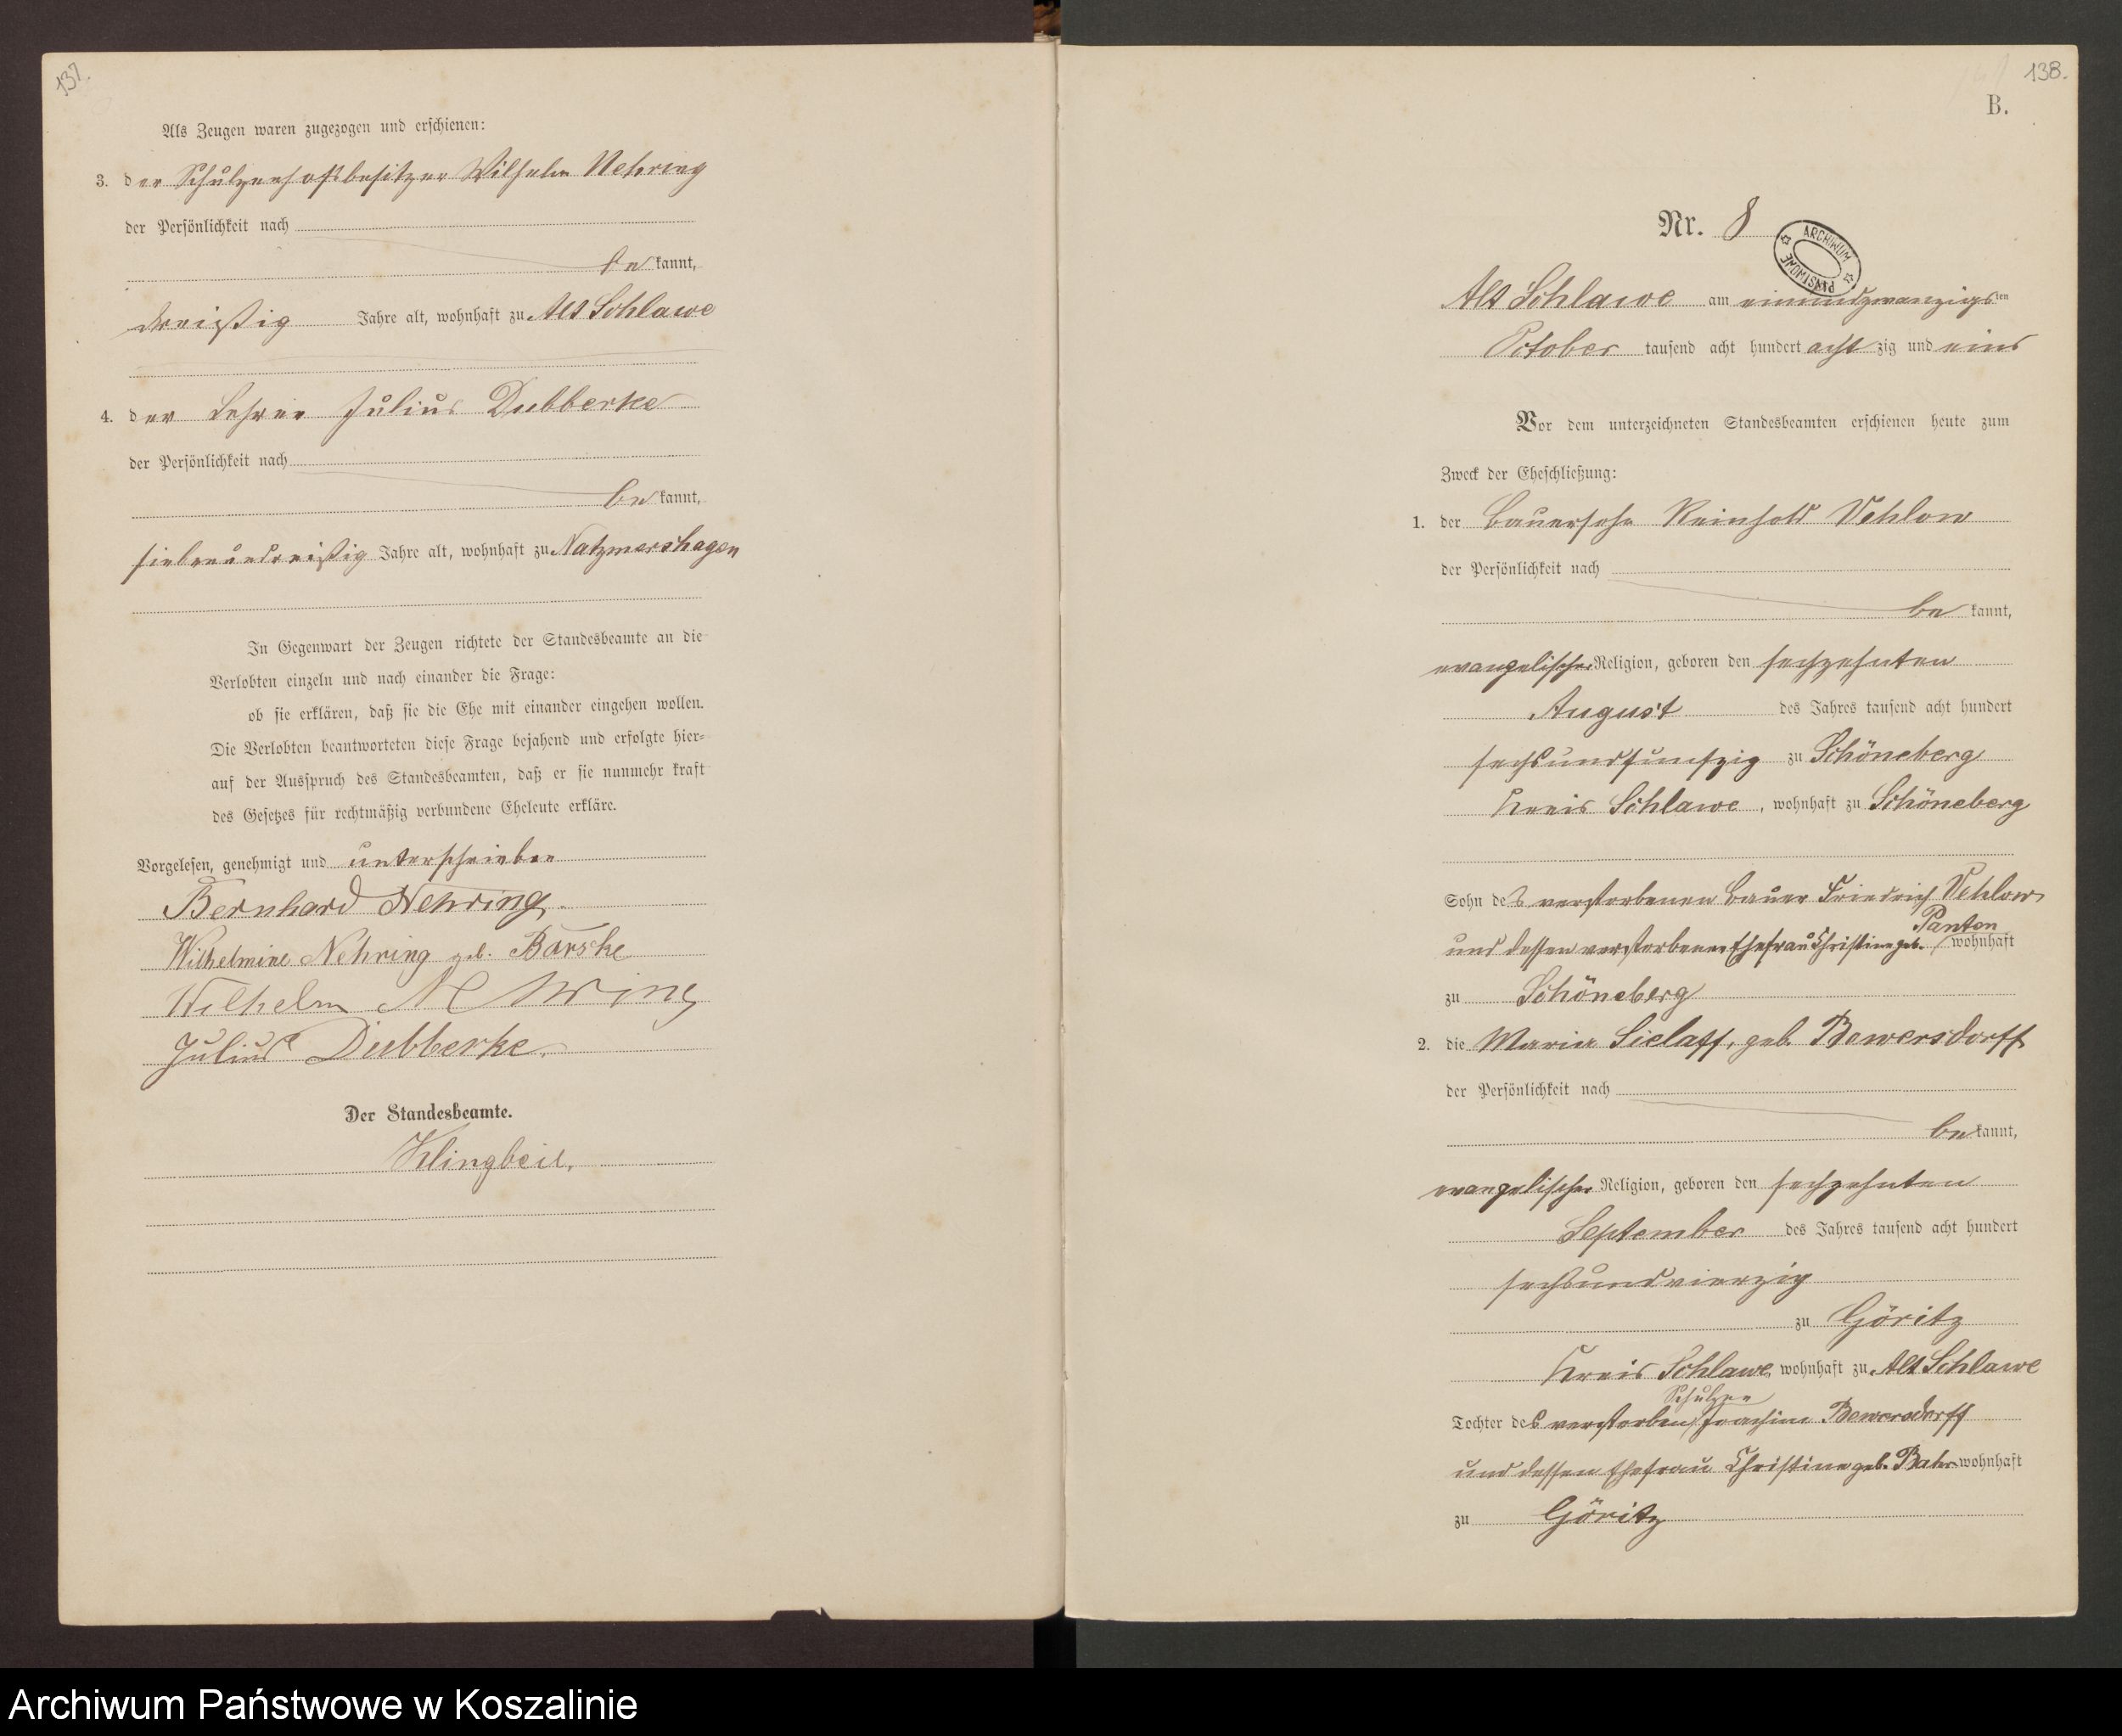 137.
Als Zeugen waren zugezogen und erschienen:
3. der Schulzenhofsbesitzer Wilhelm Nehring
der Persönlichkeit nach
be kannt,
dreißig Jahre alt, wohnhaft zu Alt Schlawe
4. der Lehrer Julius Dubberke
der Persönlichkeit nach
be kannt,
siebenundreißig Jahre alt, wohnhaft zu Natzmershagen
In Gegenwart der Zeugen richtete der Standesbeamte an die
Verlobten einzeln und nach einander die Frage:
ob sie erklären, daß sie die Ehe mit einander eingehen wollen.
Die Verlobten beantworteten diese Frage bejahend und erfolgte hier-
auf der Ausspruch des Standesbeamten, daß er sie nunmehr kraft
des Gesetzes für rechtmäßig verbundene Eheleute erkläre.
Vorgelesen, genehmigt und unterschrieben
Bernhard Nehring.
Wilhelmine Nehring geb. Barske
Wilhelm Nehring
Julius Dubberke.
Der Standesbeamte.
Klingbeil.
138.
B.
Nr. 8
ARCHIWUM PAŃSTWOWE
Alt Schlawe am einundzwanzigsten
October tausend acht hundert acht zig und eins
Vor dem unterzeichneten Standesbeamten erschienen heute zum
Zweck der Eheschließung:
1. der Bauersohn Reinhold Vehlow
der Persönlichkeit nach
be kannt,
evangelischer Religion, geboren den sechzehnten
August des Jahres tausend acht hundert
sechsundfunfzig zu Schöneberg
Kreis Schlawe, wohnhaft zu Schöneberg
Sohn des verstorbenen Bauer Friedrich Vehlow
Panton
und dessen verstorbener Ehefrau Christine geb. wohnhaft
zu Schöneberg
2. die Maria Sielaff, geb. Bewersdorff
der Persönlichkeit nach
be kannt,
evangelischer Religion, geboren den sechzehnten
September des Jahres tausend acht hundert
sechsundvierzig
zu Göritz
Kreis Schlawe, wohnhaft zu Alt Schlawe
Schulzen
Tochter des verstorben Joachim Bewersdorff
und dessen Ehefrau Christine geb. wohnhaft
zu Göritz
Archiwum Państwowe w Koszalinie